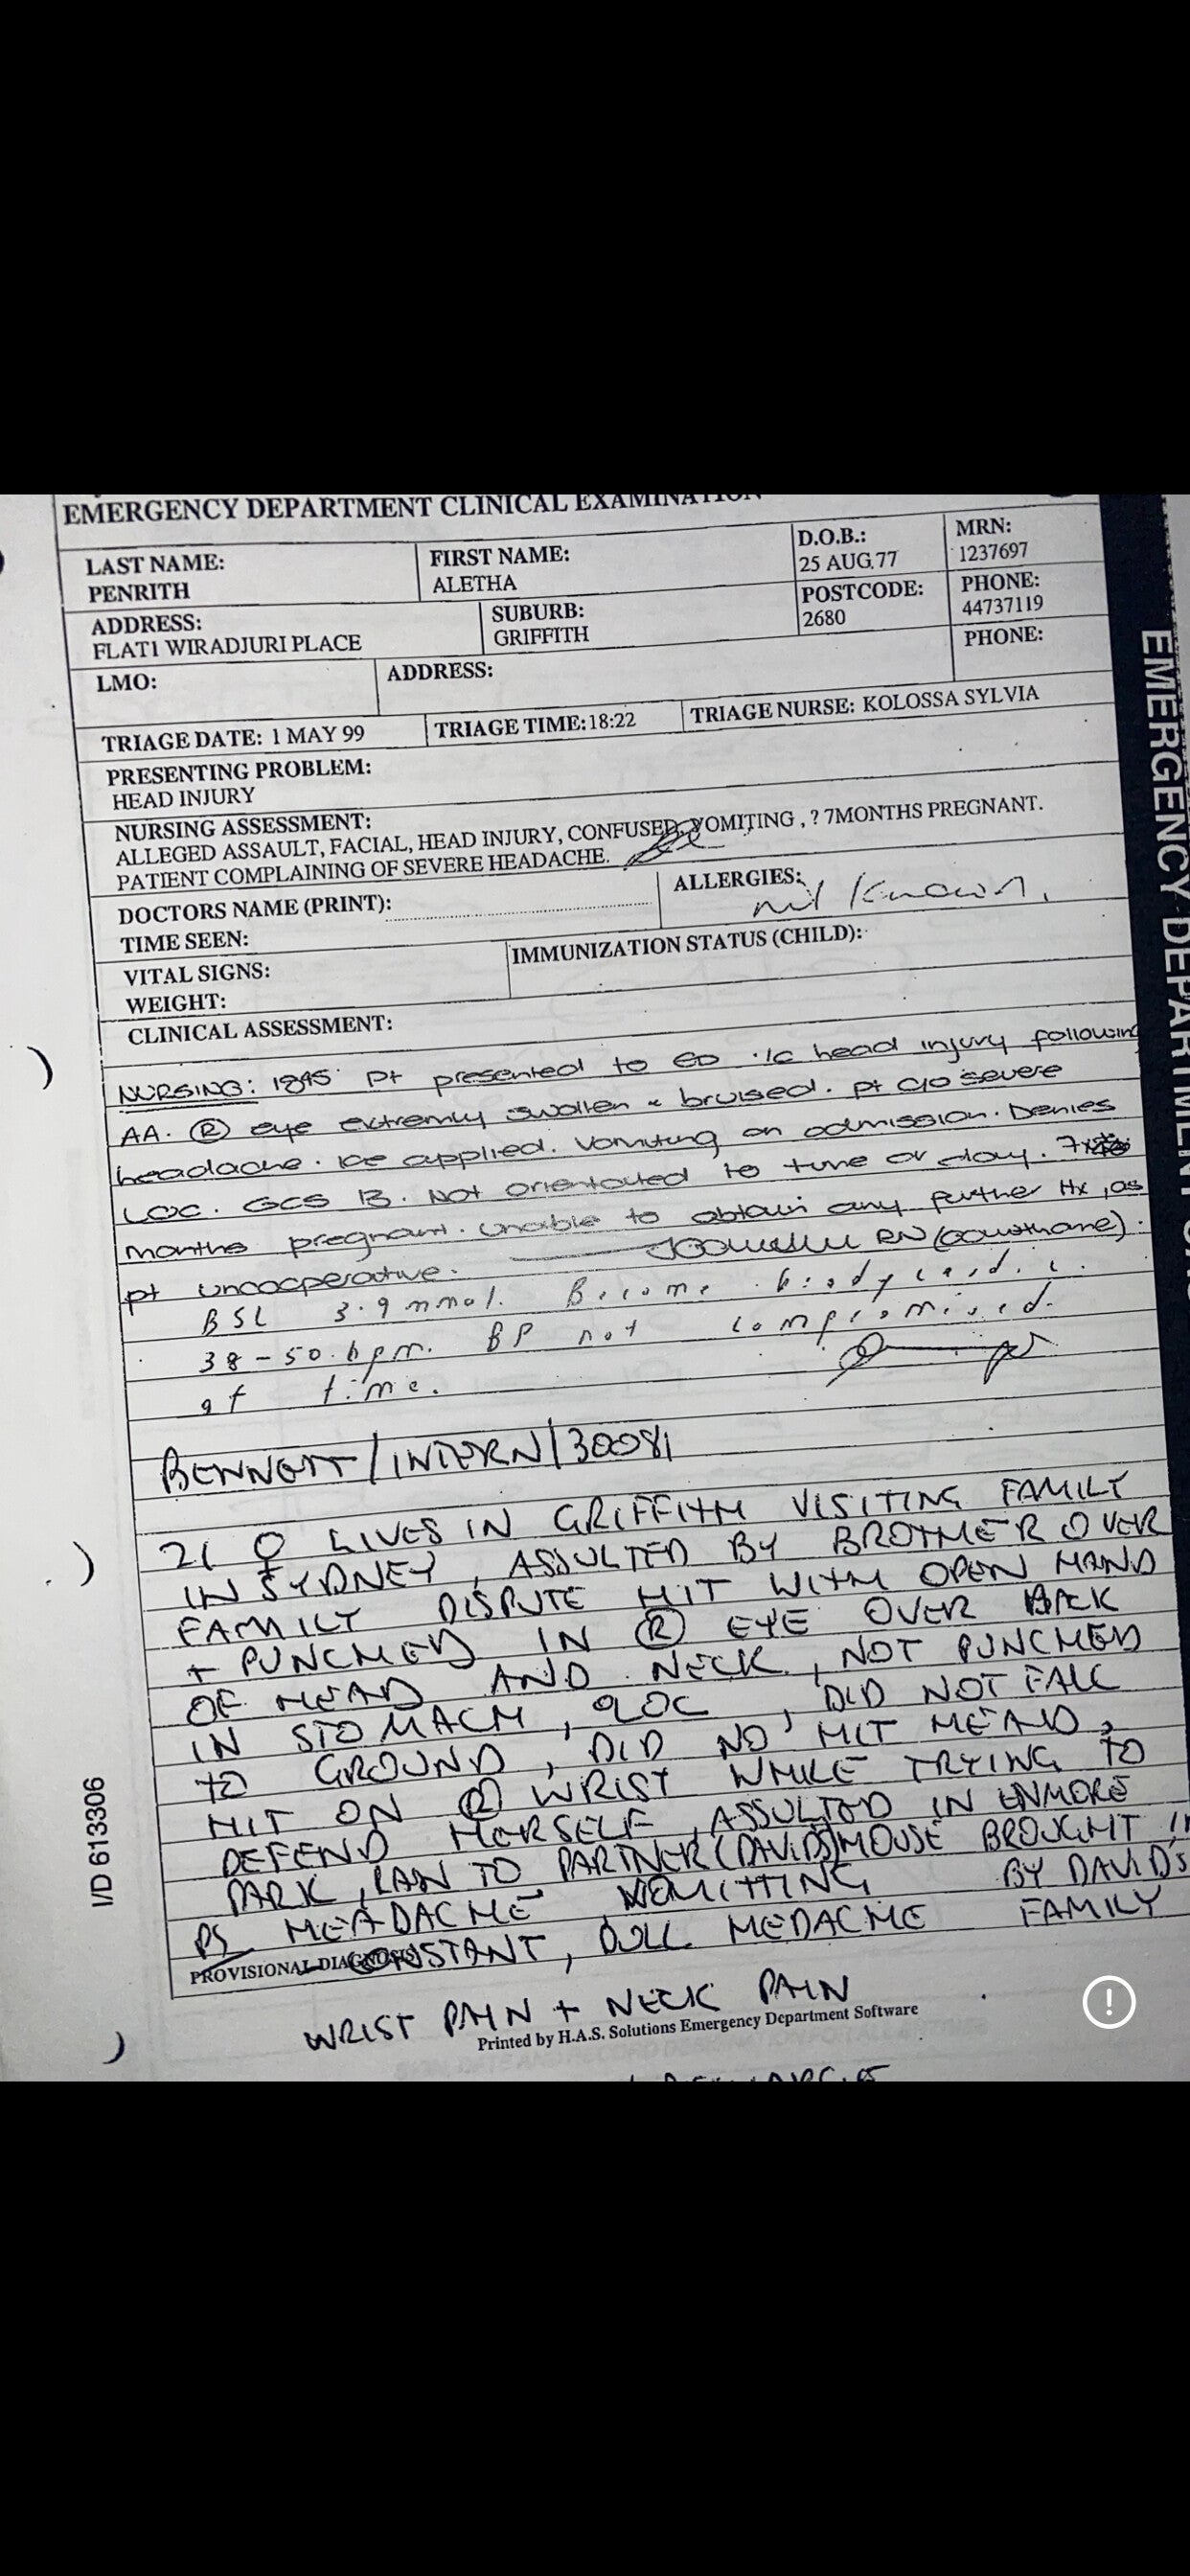 EMERGENCY DEPARTMENT CLINICAL EXAMINATION
LAST NAME: FIRST NAME: D.O.B.: MRN:
PENRITH ALETHA 25 AUG 77 1237697
ADDRESS: SUBURB: POSTCODE: PHONE:
FLAT1 WIRADJURI PLACE GRIFFITH 2680 44737119
LMO: ADDRESS: PHONE:
TRIAGE DATE: 1 MAY 99 TRIAGE TIME:18:22 TRIAGE NURSE: KOLOSSA SYLVIA
PRESENTING PROBLEM:
HEAD INJURY
NURSING ASSESSMENT:
ALLEGED ASSAULT, FACIAL, HEAD INJURY, CONFUSED, VOMITING , ? 7MONTHS PREGNANT.
PATIENT COMPLAINING OF SEVERE HEADACHE.
DOCTORS NAME (PRINT): ALLERGIES: nil known.
TIME SEEN:
VITAL SIGNS: IMMUNIZATION STATUS (CHILD):
WEIGHT:
CLINICAL ASSESSMENT:
NURSING: 1845 Pt presented to ED head injury following
AA. (R) eye extremly swollen & bruised. pt c/o severe
headache. Ice applied. Vomiting on admission. Denies
LOC. GCS 13. Not orientated to time or day. 7
months pregnant. Unable to obtain any further Hx, as
pt uncooperative. RN
BSL 3.9 mmol. Become bradycardic
38-50 bpm. BP not compromised.
at time.
BENNETT/INTERN/30081
21 ♀ LIVES IN GRIFFITH VISITING FAMILY
IN SYDNEY, ASSULTED BY BROTHER OVER
FAMILY DISPUTE HIT WITH OPEN HAND
+ PUNCHED IN (R) EYE OVER BACK
OF HEAD AND NECK, NOT PUNCHED
IN STOMACH, LOC, DID NOT FALL
TO GROUND, DID NO HIT HEAD,
HIT ON (R) WRIST WHILE TRYING TO
DEFEND HERSELF, ASSULTED IN ENMORE
PARK, RAN TO PARTNER (DAVIDS) HOUSE BROUGHT IN
HEADACHE VOMITTING BY DAVID'S
CONSTANT, DULL HEDACHE FAMILY
PROVISIONAL DIAGNOSIS
WRIST PAIN + NECK PAIN
Printed by H.A.S. Solutions Emergency Department Software
I/D 613306
EMERGENCY DEPARTMENT